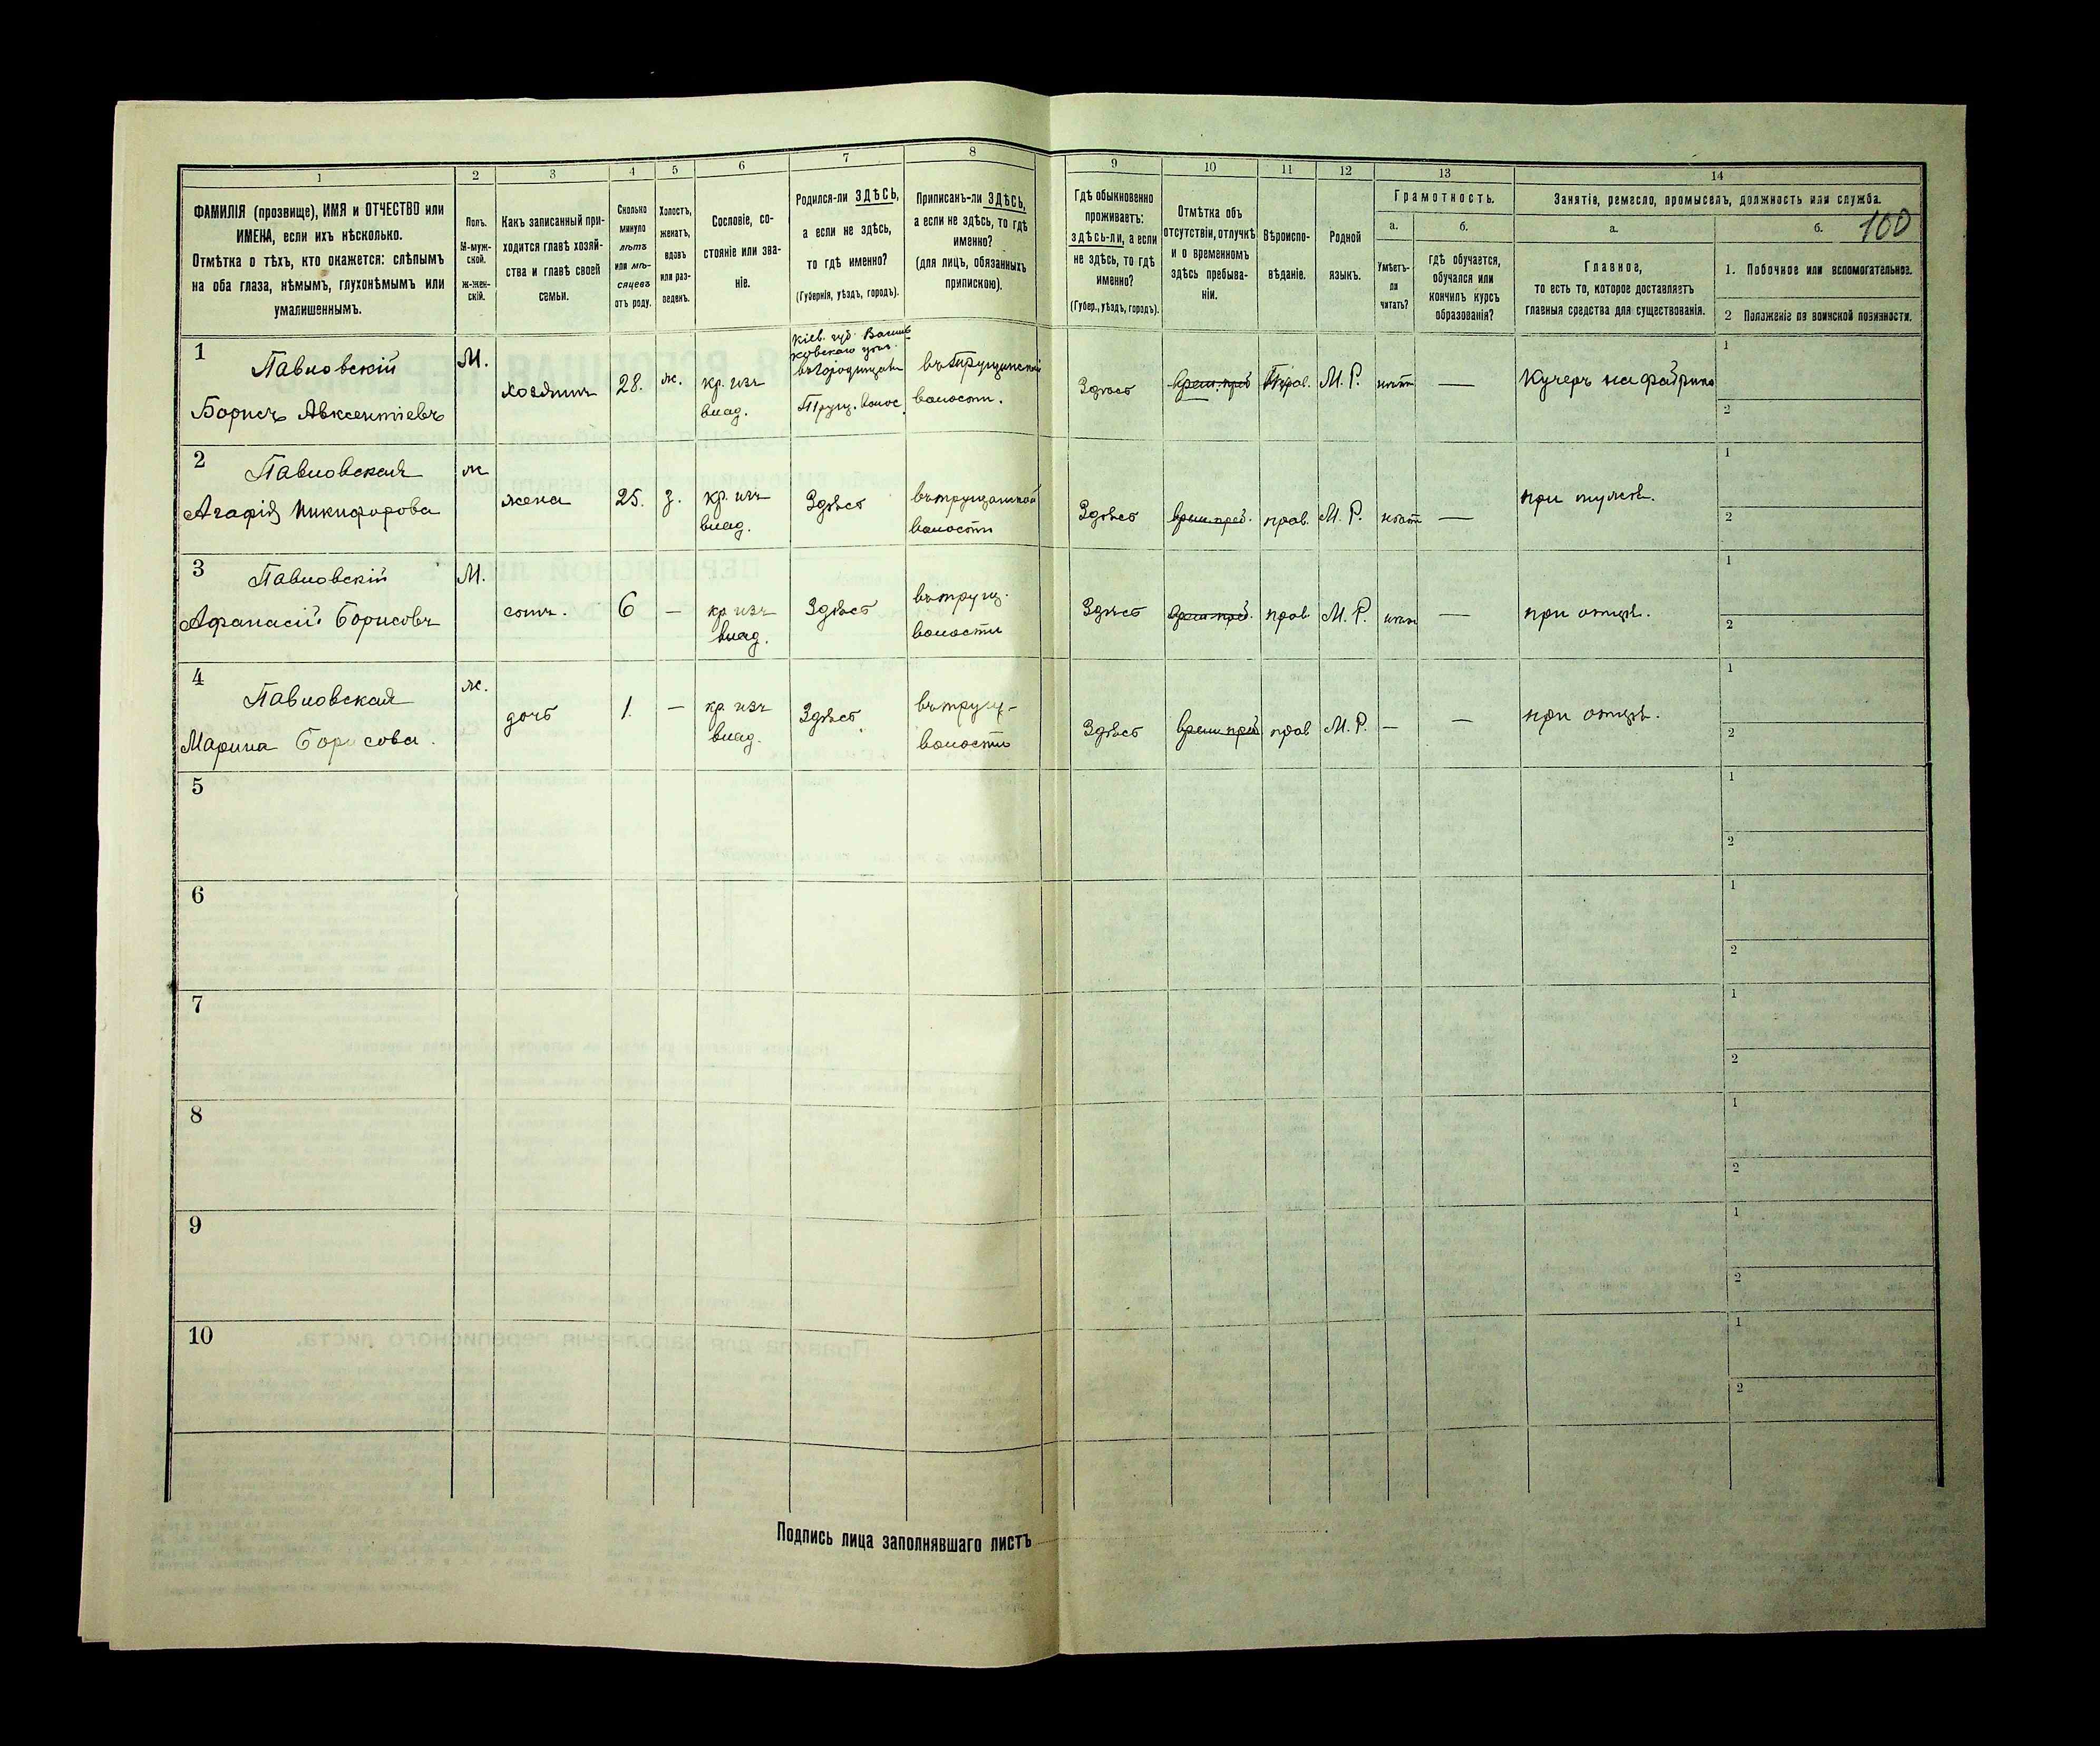 1 2 3 4 5 6 7 8 9 10 11 12 13 14
ФАМИЛІЯ (прозвище), ИМЯ и ОТЧЕСТВО или
ИМЕНА, если ихъ нѣсколько.
Отмѣтка о тѣхъ, кто окажется: слѣпымъ
на оба глаза, нѣмымъ, глухонѣмымъ или
умалишеннымъ.
Полъ.
М-муж-
ской.
Ж-жен-
скій.
Какъ записанный при-
ходится главѣ хозяй-
ства и главѣ своей
семьи.
Сколько
минуло
лѣтъ
или мѣ-
сяцевъ
отъ роду.
Холостъ,
женатъ,
вдовъ
или раз-
веденъ.
Сословіе, со-
стояніе или зва-
ніе.
Родился-ли ЗДѢСЬ,
а если не здѣсь,
то гдѣ именно?
(Губернія, уѣздъ, городъ).
Приписанъ-ли ЗДѢСЬ,
а если не здѣсь, то гдѣ
именно?
(для лицъ, обязанныхъ
припискою).
Гдѣ обыкновенно
проживаетъ:
здѣсь-ли, а если
не здѣсь, то гдѣ
именно?
(Губер., уѣздъ, городъ).
Отмѣтка объ
отсутствіи, отлучкѣ
и о временномъ
здѣсь пребыва-
ніи.
Вѣроиспо-
вѣданіе.
Родной
языкъ.
Грамотность.
а.
Умѣетъ-
ли
читать?
б.
гдѣ обучается,
обучался или
кончилъ курсъ
образованія?
Занятіе, ремесло, промыселъ, должность или служба.
а.
Главное,
то есть то, которое доставляетъ
главныя средства для существованія.
б. 100
1. Побочное или вспомогательное.
2 Положеніе по воинской повинности.
1
Павловскій
Борисъ Авксентіевъ
М.
хозяинъ
28.
ж.
кр. изъ
влад.
Кіев. губ. Василь
ковскаго
волос.
волости.
Здѣсь
врем. преб
Прав.
М. Р.
нѣтъ
—
Кучеръ на фабрикѣ
1
2
2
Павловская
Агафія Никифорова
ж
жена
25.
з.
кр. изъ
влад.
Здѣсь
волости
Здѣсь
врем. преб.
прав.
М. Р.
нѣтъ
—
при мужѣ.
1
2
3
Павловскій
Афанасій Борисовъ
М.
сынъ.
6
—
кр изъ
влад.
Здѣсь
волости
Здѣсь
врем преб.
прав
М. Р.
нѣтъ
—
при отцѣ.
1
2
4
Павловская
Марина Борисова.
ж.
дочь
1.
—
кр. изъ
влад.
Здѣсь
волости
Здѣсь
врем преб
прав
М. Р.
—
—
при отцѣ.
1
2
5
1
2
6
1
2
7
1
2
8
1
2
9
1
2
10
1
2
Подпись лица заполнявшаго листъ